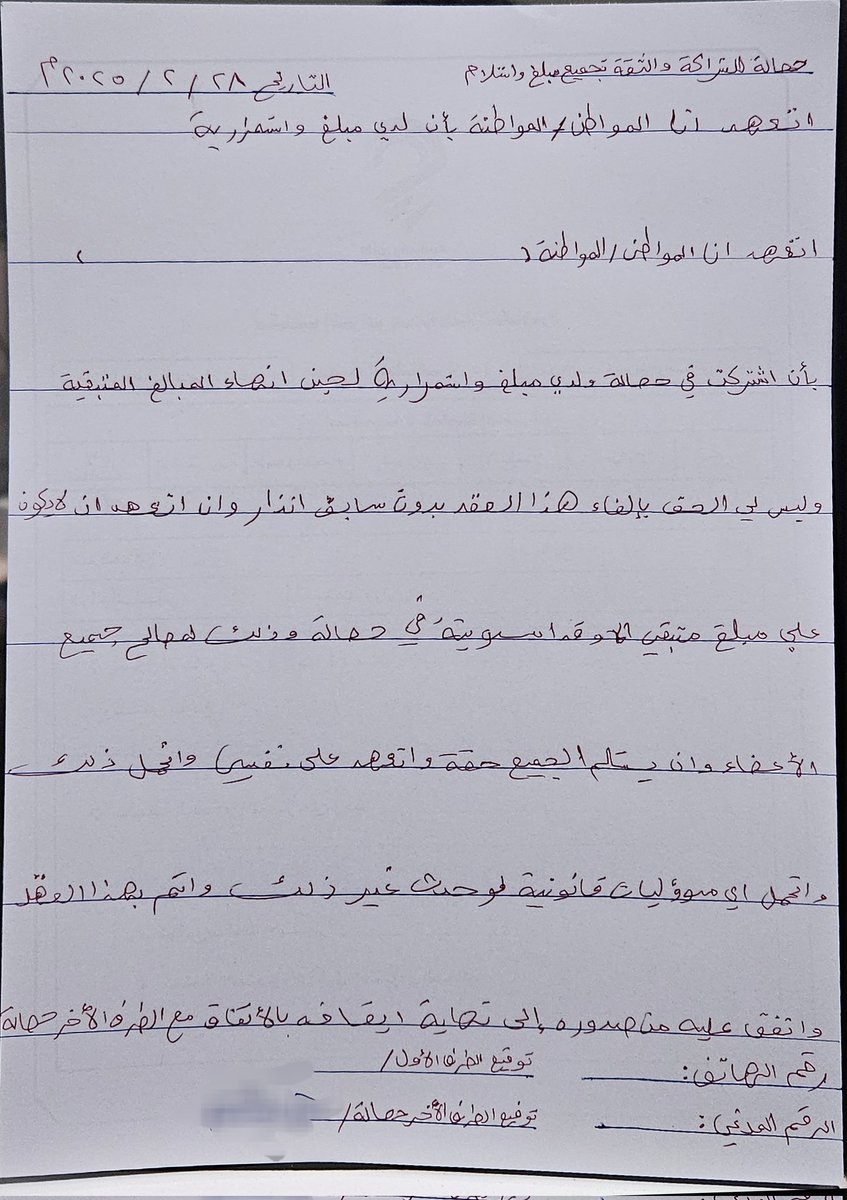 حصالة للشراكة والثقة تجميع مبلغ واستلام التاريخ ٢٨ / ٢ / ٢٠٢٥م
اتعهد انا المواطن/المواطنة بأن لدي مبلغ واستمرارية
اتعهد انا المواطن/المواطنة ( )
بأن اشتركت في حصالة ولدي مبلغ واستمرارية لحين انهاء المبالغ المتبقية
وليس لي الحق بإلغاء هذا العقد بدون سابق انذار وان اتعهد ان لايكون
علي مبلغ متبقي الا وقد اسويته في حصالة وذلك لصالح جميع
الأعضاء وان يستالم الجميع حقة واتعهد على نفسي واتحمل ذلك
واتحمل اي مسؤوليات قانونية لوحدث غير ذلك واتم بهذا العقد
واتفق عليه من صدوره إلى نهاية ايقافه بالأتفاق مع الطرف الأخر حصالة
رقم الهاتف: توقيع الطرف الأول/
الرقم المدني: توقيع الطرف الأخر حصالة/